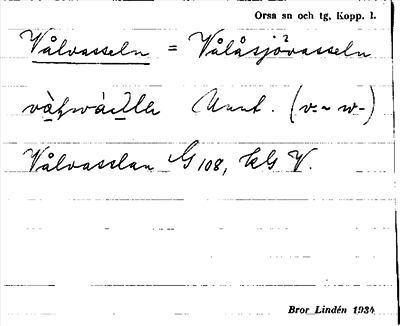 Orsa sn och tg, Kopp. l.
Vålvasseln = Vålåsjövasseln
Unnt. (v- ~ w-)
Vålvasslan G 108, kls V.
Bror Lindén 1934